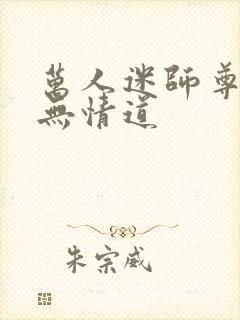 萬人迷師尊
無情道
朱宗威